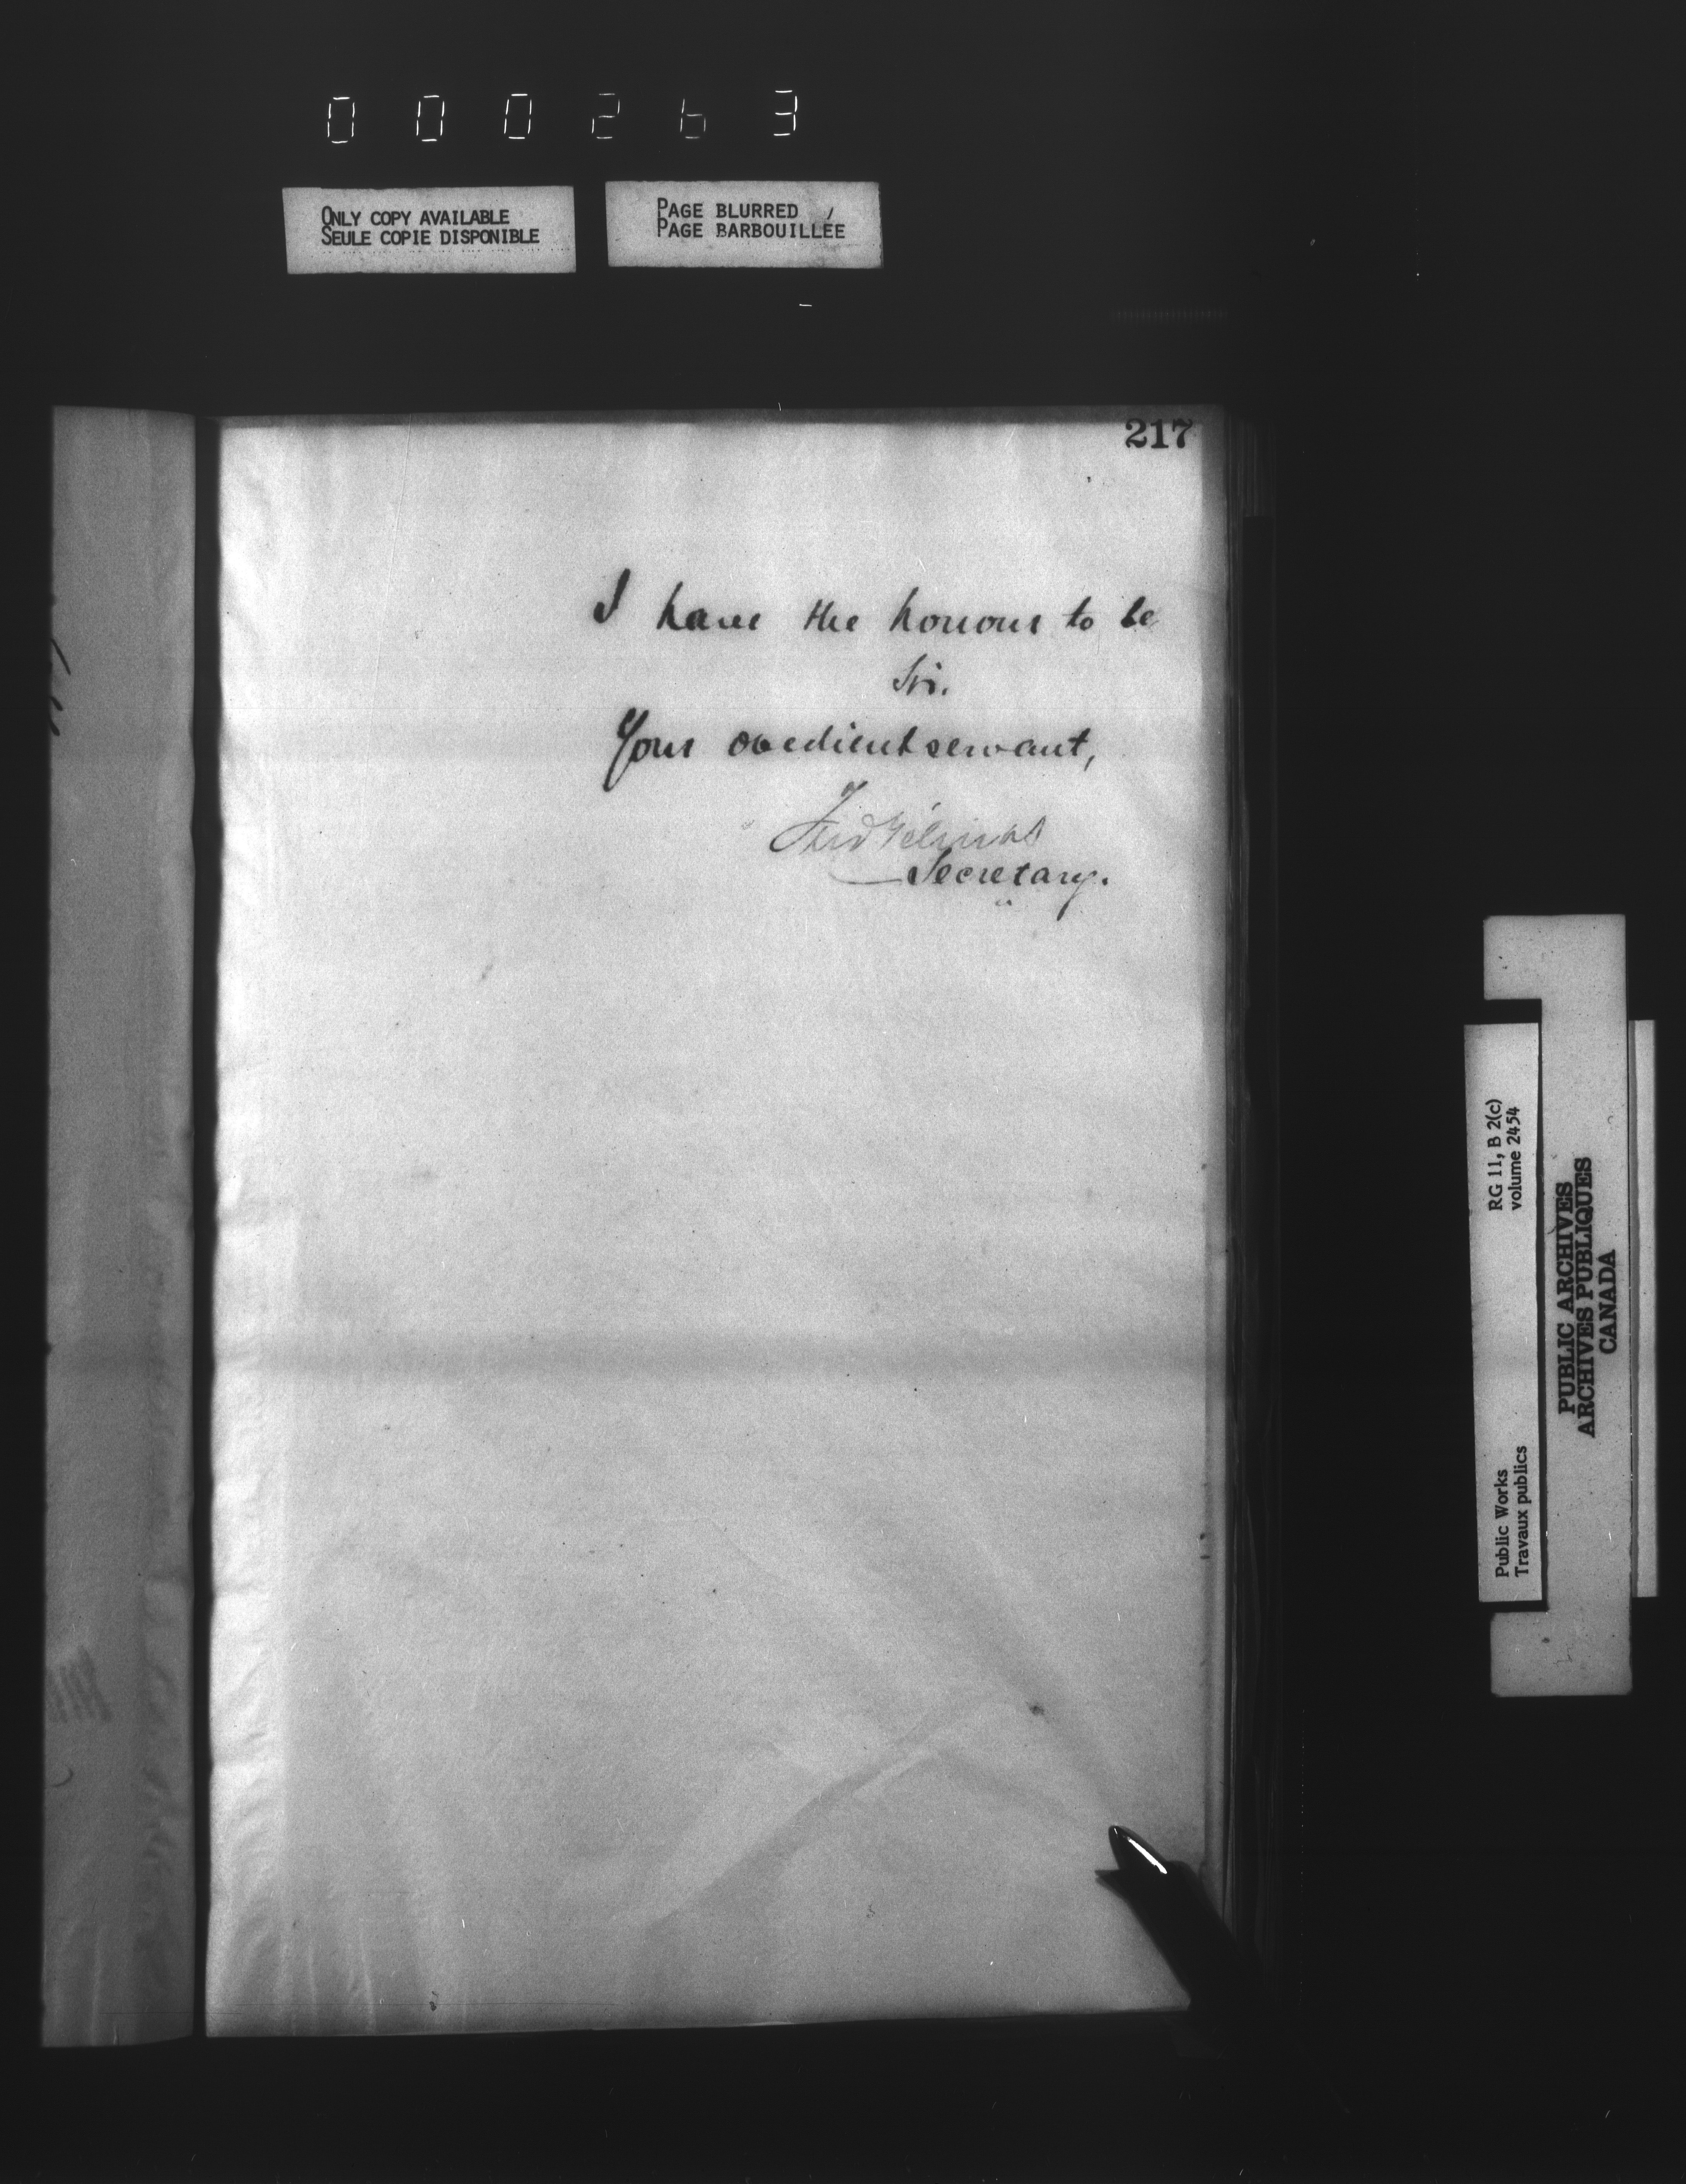 000263
ONLY COPY AVAILABLE
SEULE COPIE DISPONIBLE
PAGE BLURRED
PAGE BARBOUILLÉE
217
I have the honour to be
Sir.
Your obedient servant,
Fred Gélinas
Secretary.
RG 11, B 2(c)
volume 2454
Public Works
Travaux publics
PUBLIC ARCHIVES
ARCHIVES PUBLIQUES
CANADA